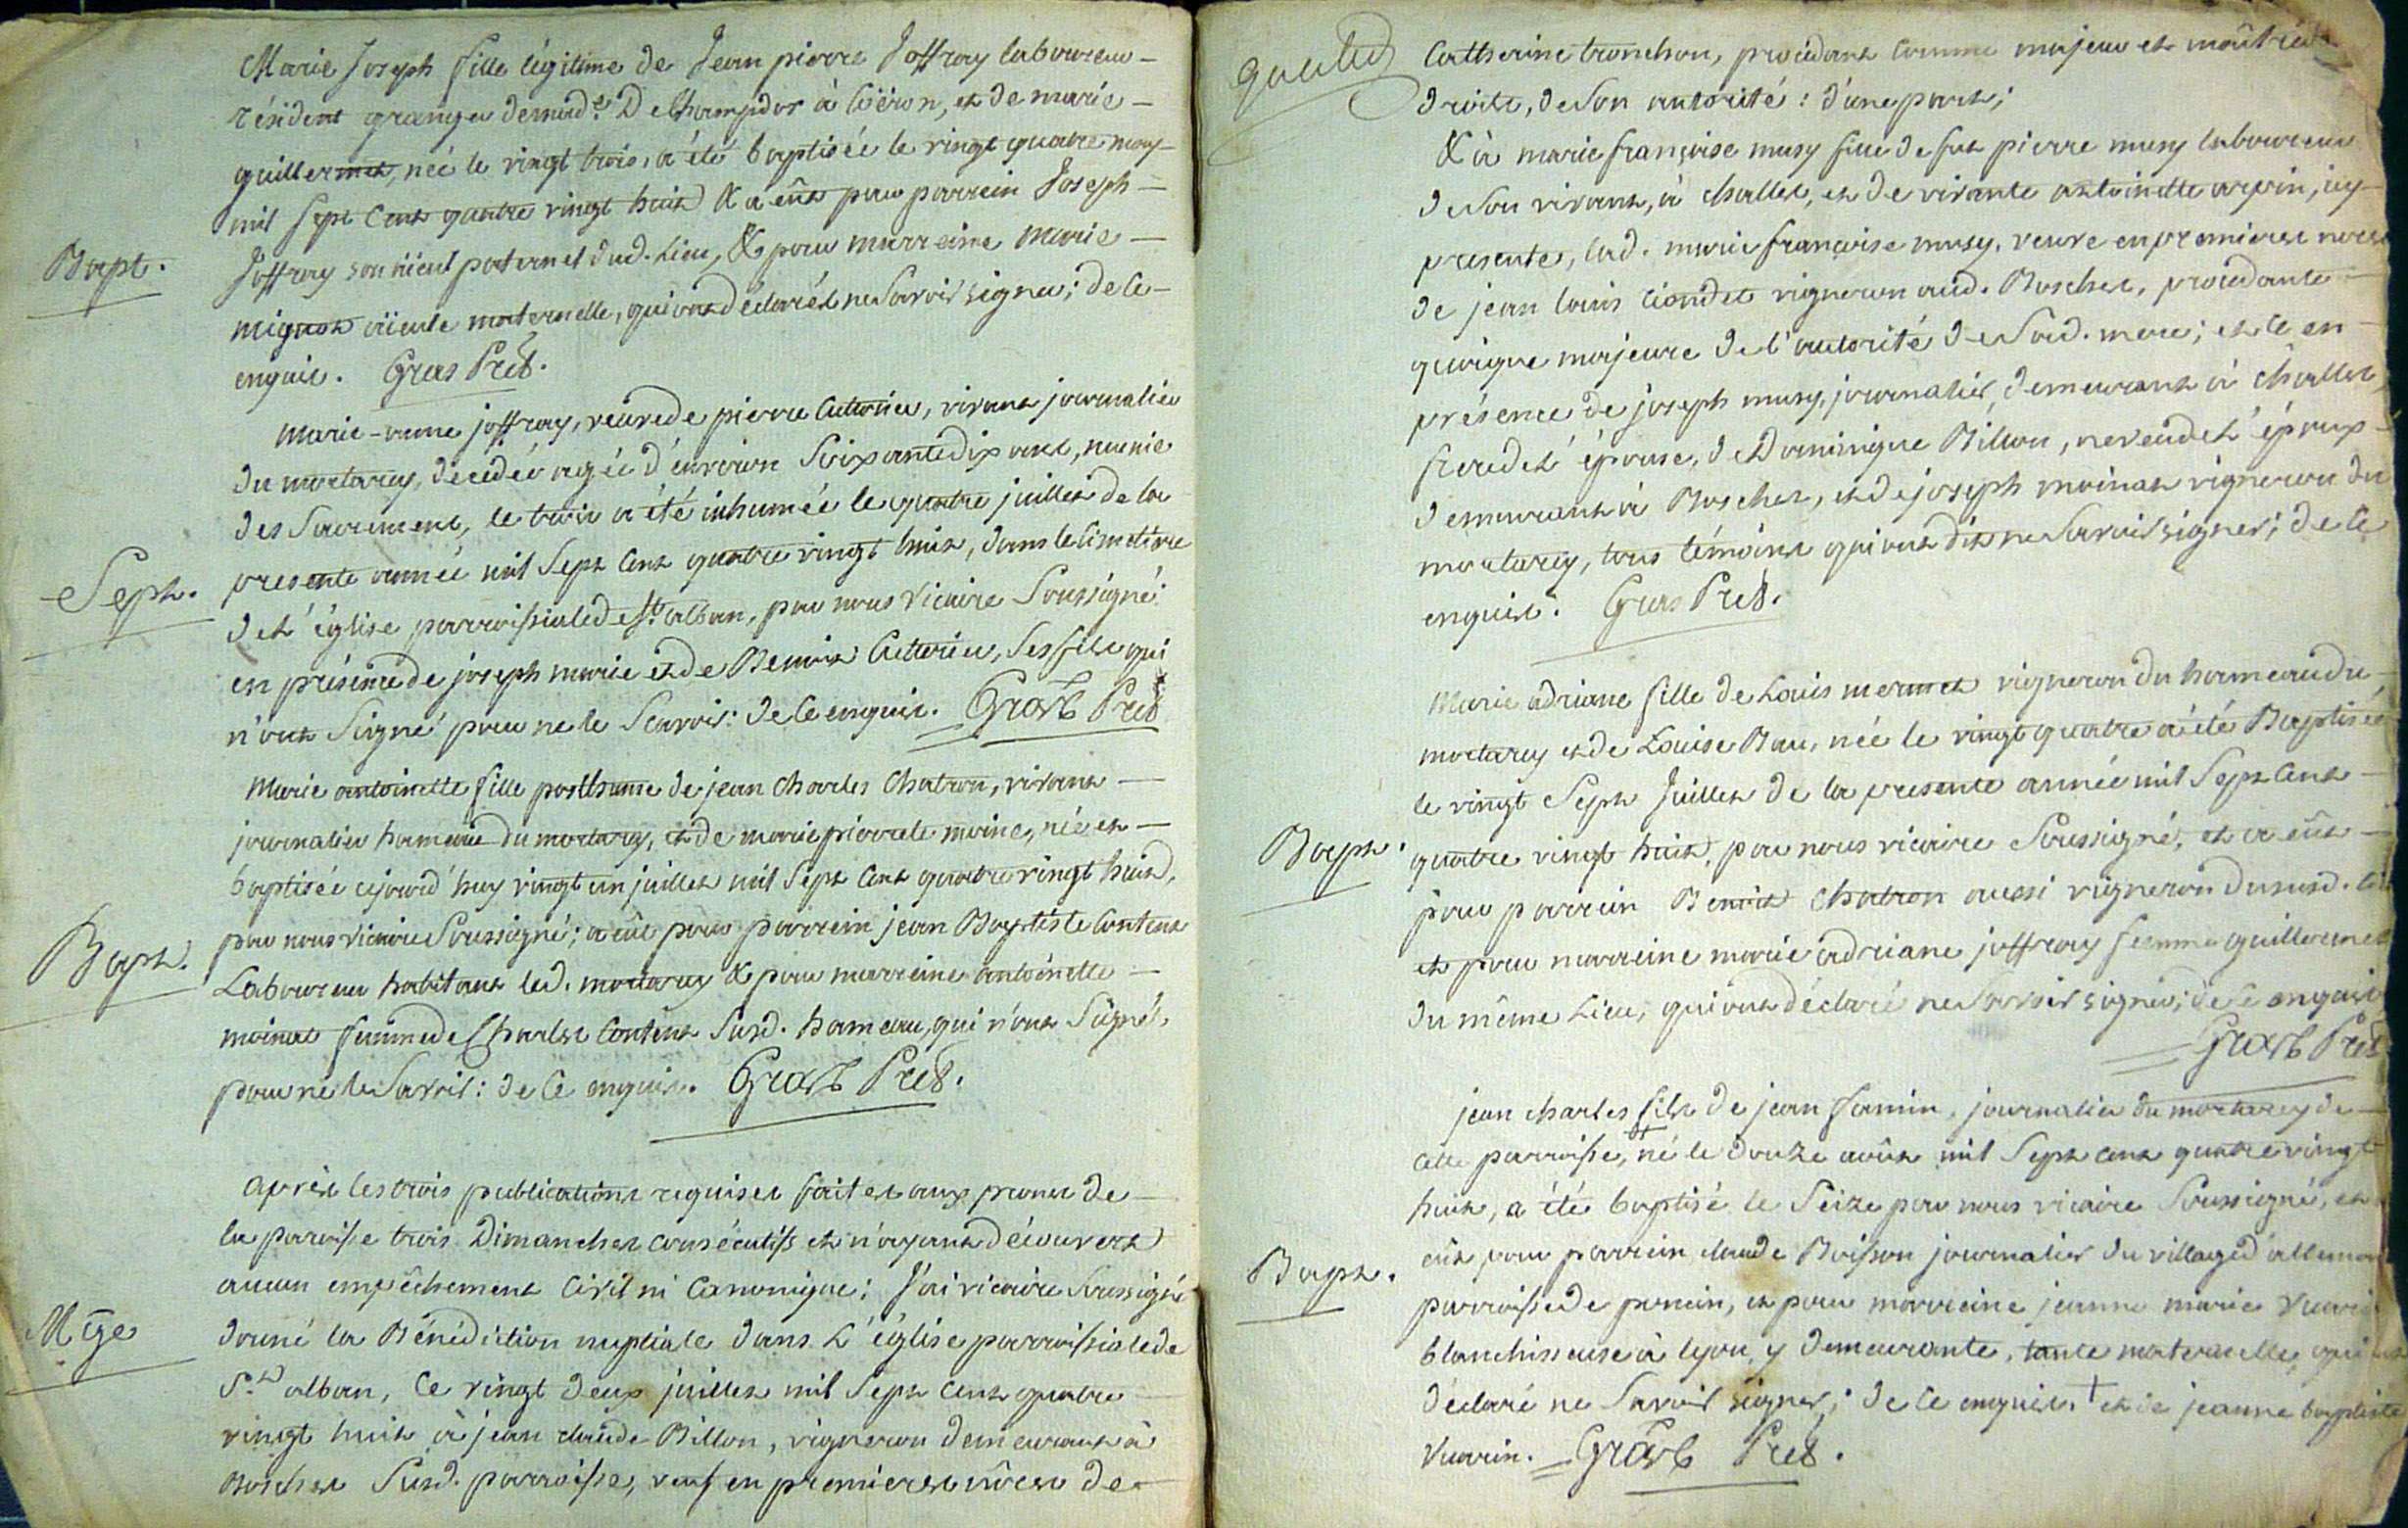 Marie Joseph fille légitime de Jean pierre Joffray laboureur
résident granger demad.e De Champdor à Cöeron, et de marie
guillermet, née le vingt trois, a été baptisée le vingt quatre may
mil Sept Cent quatre vingt huit & a eût pour parrein Joseph
Bapt.
Joffray son aïeul paternel dud. Lieu, & pour marreine Marie
mignot aïeule maternelle, qui ont déclarés ne Savoir signer; de Ce
enquis. Gras Pret.
Marie-anne joffray, veuve de pierre Cuterieu, vivant journalier
du mortarey, decedée agée d'environ Soixante dix ans, munie
des Sacremens, le trois a été inhumée le quatre juillet de la
Sept.
presente année mil Sept Cent quatre vingt huit, dans le Cimetiere
de l'église parroissiale de St. alban, par nous Vicaire Soussigné
en présence de joseph marie et de Benoit Cuterieu, Ses fils qui
n'ont Signé pour ne le Scavoir: de Ce enquis. Gras Pret
Marie antoinette fille posthume de jean Charles Chatron, vivant
journalier hameau du mortarey, et de marie pierrale moine, née et
baptisée cejourd'huy vingt un juillet mil Sept Cent quatre vingt huit,
Bapt.
par nous Vicaire Soussigné; a eût pour parrein jean Baptiste Content
Laboureur habitant led. mortarey & pour marreine antoinette
moinat femme de Charles Content Susd. hameau, qui n'ont Signé,
pour ne le Savoir: de Ce enquis. Gras Pret.
Après les trois publications requises faites aux prones de
la paroisse trois Dimanches consécutifs et n'ayant découvert
aucun empêchement Civil ni Canonique; J'ai vicaire Soussigné
Mge
donné la Bénédiction nuptiale dans L'église parroissiale de
St. alban, Ce vingt deux juillet mil Sept Cent quatre
vingt huit à jean claude Billon, vigneron demeurant à
Boscher Susd. parroisse, veuf en premieres nôces de
Catherine tronchon, procédant Comme majeur et maître de
droits, de Son autorité: d'une part;
& à marie françoise musy fille de feu pierre musy laboureur
de Son vivant, à challes, et de vivante antoinette arpin, icy
presente, lad. marie françoise musy, veuve en premieres noces
de jean louis vigneron aud. Boscher, procédante
quoique majeure de l'autorité de Sad. mere; et Ce en
présence de joseph musy, journalier, demeurant à Challes,
frere de l'épouse, de Dominique Billon, neveu de l'époux
demeurant à Boscher, et de joseph moinat vigneron du
mortarey, tous témoins qui ont dit ne Savoir signer; de Ce
enquis. Gras Pret.
Marie adriane fille de Louis mermet vigneron du hameau du
mortarey et de Louise Bau, née le vingt quatre a été Baptisée
le vingt Sept Juillet de la presente année mil Sept Cent
Bapt.
quatre vingt huit, par nous vicaire Soussigné, et a eût
pour parrein Benoit Chatron aussi vigneron du susd. lieu
et pour marreine marie adriane joffray femme guillermet
du même Lieu, qui ont déclaré ne Savoir signer; de Ce enquis
Gras Pret
jean charles fils de jean famin, journalier du mortarey de
cette parroisse, † né le douze août mil Sept cent quatre vingt
huit, a été baptisé le Seize par nous vicaire Soussigné, et
Bapt.
eût pour parrein claude Boisson journalier du village d'allemen
parroisse de poncin, et pour marreine jeanne marie Vuarin
blanchisseuse à lyon, y demeurante, tante maternelle, qui ont
déclaré ne Savoir signer; de Ce enquis. † et de jeanne baptiste
Vuarin. Gras Pret.